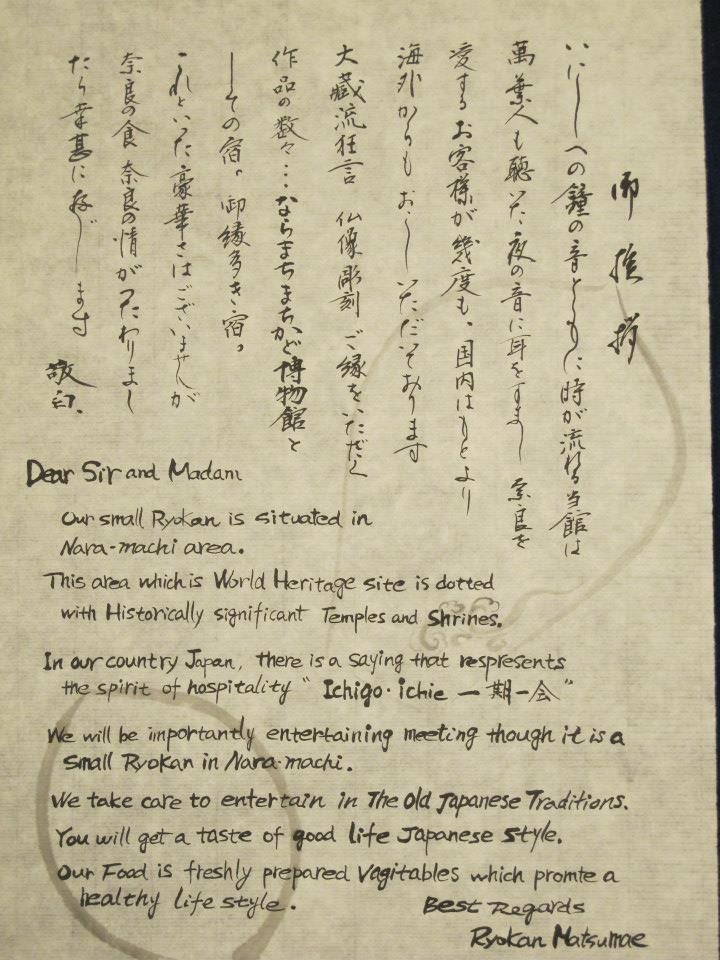 御挨拶
いにしへの鐘の音とともに時が流れる当館は
萬葉人も聴いた夜の音に耳をすまし 奈良を
愛するお客様が幾度も、国内はもとより
海外からもおこしいただいております
大蔵流狂言 仏像彫刻 ご縁をいただく
作品の数々…ならまちまちかど博物館と
しての宿。御縁多き宿。
これといった豪華さはございませんが
奈良の食 奈良の情がつたわりまし
たら幸甚に存じします 敬白、
Dear Sir and Madam
Our small Ryokan is situated in
Nara-machi area.
This area which is World Heritage site is dotted
with Historically significant Temples and Shrines.
In our country Japan, there is a saying that respresents
the spirit of hospitality " Ichigo・ichie 一期一会"
We will be importantly entertaining meeting though it is a
small Ryokan in Nara-machi.
We take care to entertain in The Old Japanese Traditions.
You will get a taste of good life Japanese style.
Our Food is freshly prepared Vagitables which promte a
healthy life style.
Best Regards
Ryokan Matsumae